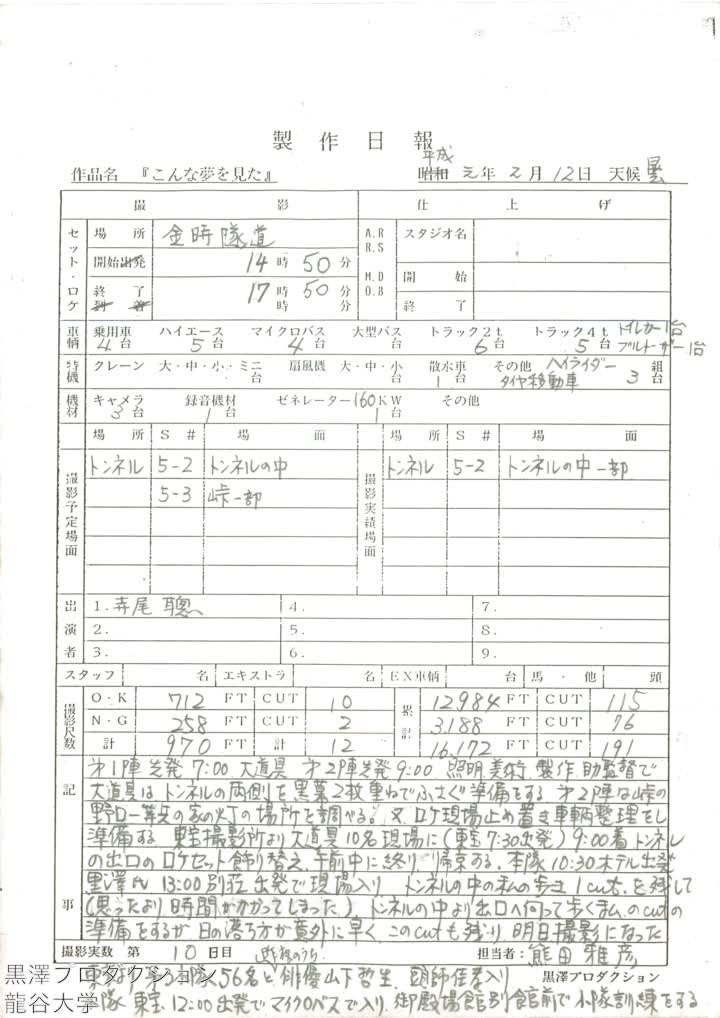 製作日報
作品名 『こんな夢を見た』 昭和 平成 元年 2月 12日 天候 曇
撮影 仕上げ
セット・ロケ 場所 金時隧道 A.R R.S スタジオ名
開始 出発 14時 50分 M.D D.B 開始
終了 到着 17時 50分 時 分 終了
車輌 乗用車 4台 ハイエース 5台 マイクロバス 4台 大型バス 台 トラック2t 6台 トラック4t 5台 トレーラー1台 ブルトーザー1台
特機 クレーン 大・中・小・ミニ 台 扇風機 大・中・小 台 散水車 1台 その他 ハイライダー タイヤ移動車 3 組台
機材 キャメラ 3台 録音機材 1台 ゼネレーター160KW 1台 その他
場所 S# 場面 場所 S# 場面
撮影予定場面 トンネル 5-2 トンネルの中 撮影実績場面 トンネル 5-2 トンネルの中 一部
5-3 峠一部
出演者 1. 寺尾 聰 4. 7.
2. 5. 8.
3. 6. 9.
スタッフ 名 エキストラ 名 EX車輌 台 馬・他 頭
撮影尺数 O・K 712 FT CUT 10 累計 12.984 FT CUT 115
N・G 258 FT CUT 2 3.188 FT CUT 76
計 970 FT 計 12 16.172 FT CUT 191
記事 才1陣 先発 7:00 大道具 才2陣先発 9:00 照明 美術 製作 助監督で
大道具は トンネルの両側を黒幕2枚重ねでふさぐ準備をする 才2陣は峠の
野口一等兵の家の灯の場所を調べる。又 ロケ現場止め置き車輌整理をし
準備する 東宝撮影所より大道具10名現場に (東宝7:30出発) 9:00着 トンネル
の出口のロケセット飾り替え 午前中に終り 帰京する。本隊 10:30 ホテル出発
黒澤氏 13:00 別荘出発で現場入り トンネルの中の私の歩き 1cutを残して
(思ったより時間がかかってしまった) トンネルの中より出口へ向って歩く のcutの
準備をするが 日の落ち方が意外に早く このcutも残り 明日撮影になった
撮影実数 第 10 日目 担当者: 熊田雅彦
第3小隊 56名と 俳優山下哲生 頭師佳孝入り 黒澤プロダクション
隊 東宝 12:00出発で マイクロバスで入り 御殿場館別館前で小隊訓練をする
黒澤プロダクション
龍谷大学